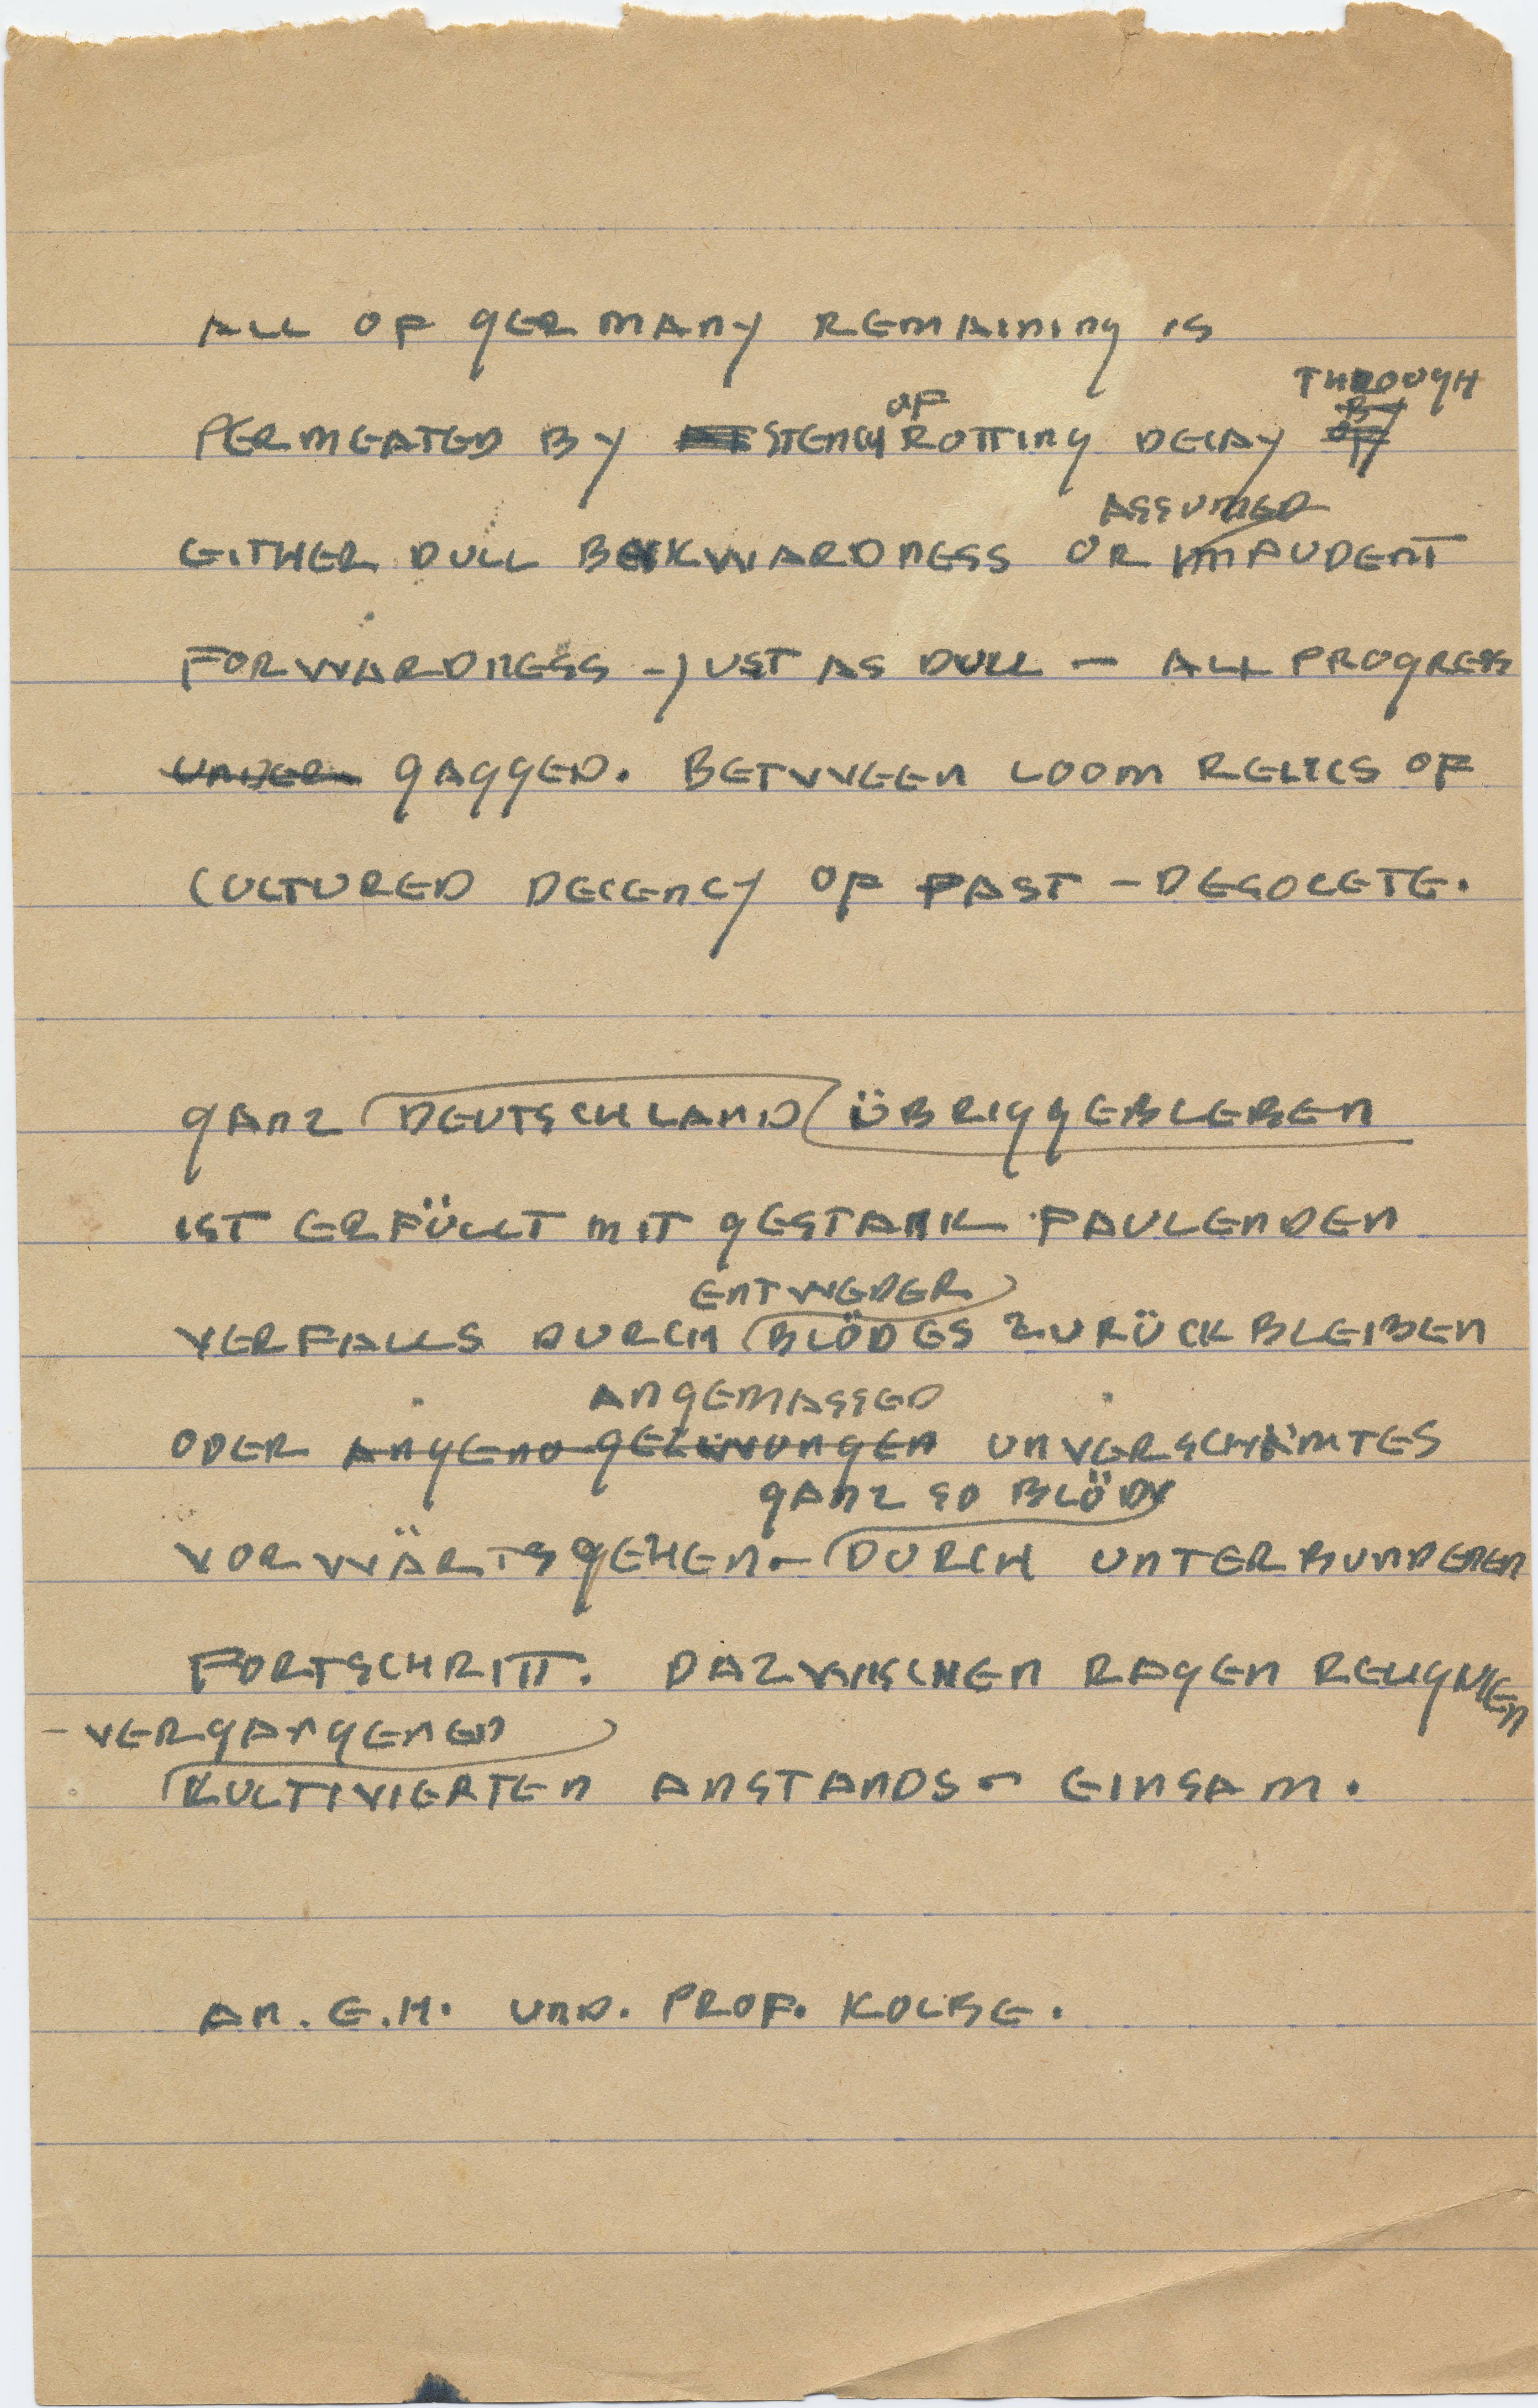 ALL OF GERMANY REMAINING IS
OF THROUGH
PERMEATED BY STENCH ROTTING DECAY BY OF
ASSUMED
EITHER DULL BACKWARDNESS OR IMPUDENT
FORWARDNESS - JUST AS DULL - ALL PROGRESS
UNDER GAGGED. BETWEEN LOOM RELICS OF
CULTURED DECENCY OF PAST - DESOLETE.
GANZ DEUTSCHLAND ÜBRIGGEBLEBEN
IST ERFÜLLT MIT GESTANK FAULENDEN
ENTWEDER
VERFALLS DURCH BLÖDES ZURÜCKBLEIBEN
ANGEMASSED
ODER GEZWUNGEN UNVERSCHÄMTES
GANZ SO BLÖDY
VORWÄRTSGEHEN - DURCH UNTERBUNDENEN
FORTSCHRITT. DAZWISCHEN RAGEN RELIQUIEN
- VERGANGENEN
KULTIVIERTEN ANSTANDS - EINSAM.
AN. E.H. UND. PROF. KOLBE.